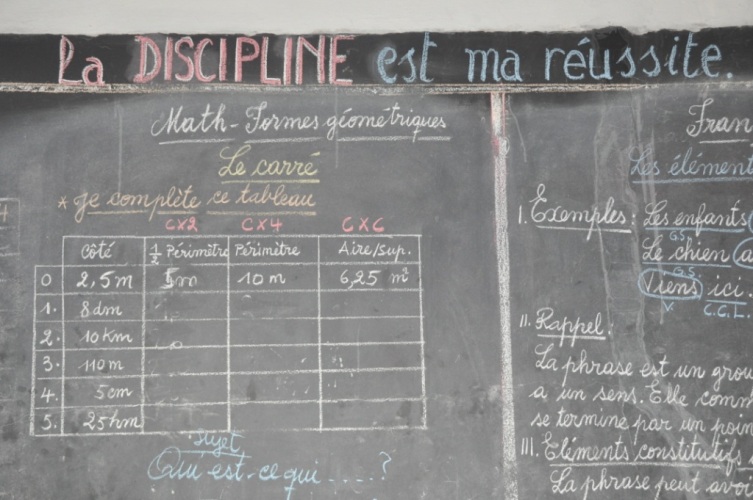 La DISCIPLINE est ma réussite.
Math - Formes géométriques
Le carré
* Je complète ce tableau
C×2 C×4 C×C
Côté ½ Périmètre Périmètre Aire/sup.
0 2,5m 5m 10 m 6,25 m²
1. 8dm
2. 10Km
3. 110m
4. 5cm
5. 25hm
sujet
Qui est-ce qui .....?
Fran
Les élémen
I. Exemples : Les enfants
G.S.
Le chien a
G.S.
Viens ici.
V. C.C.L.
II. Rappel :
La phrase est un grou
a un sens. Elle comm
se termine par un poin
III. Eléments constitutifs
La phrase peut avoi